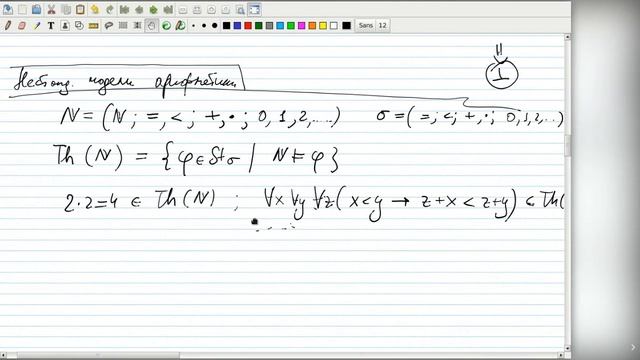 Sans 12
11
1
Нестанд. модели арифметики
N = (N; =, <; +, ·; 0, 1, 2, ....) σ = (=; <; +, ·; 0, 1, 2, ..)
Th(N) = {φ ∈ Stσ | N ⊨ φ}
2·2=4 ∈ Th(N) ; ∀x ∀y ∀z (x<y → z+x < z+y) ∈ Th(